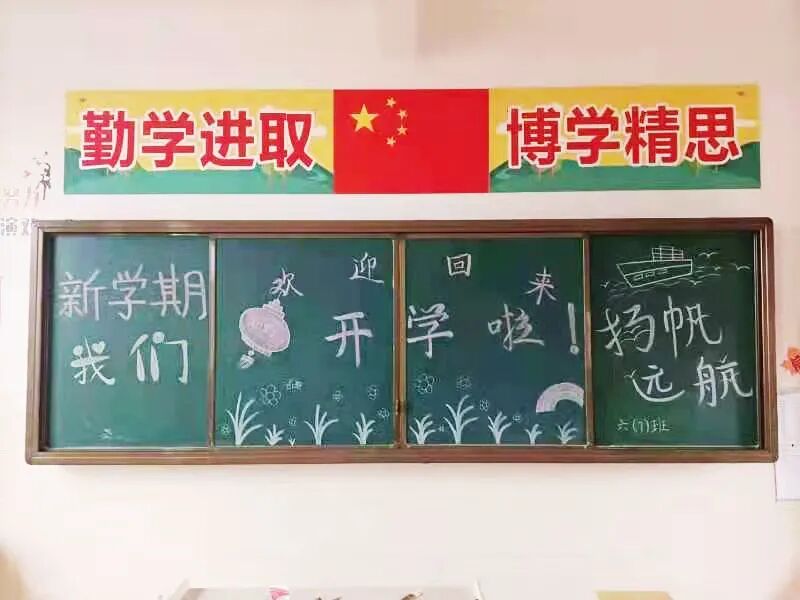 勤学进取
博学精思
新学期
我们
欢迎回来
开学啦！
扬帆
远航
六(7)班